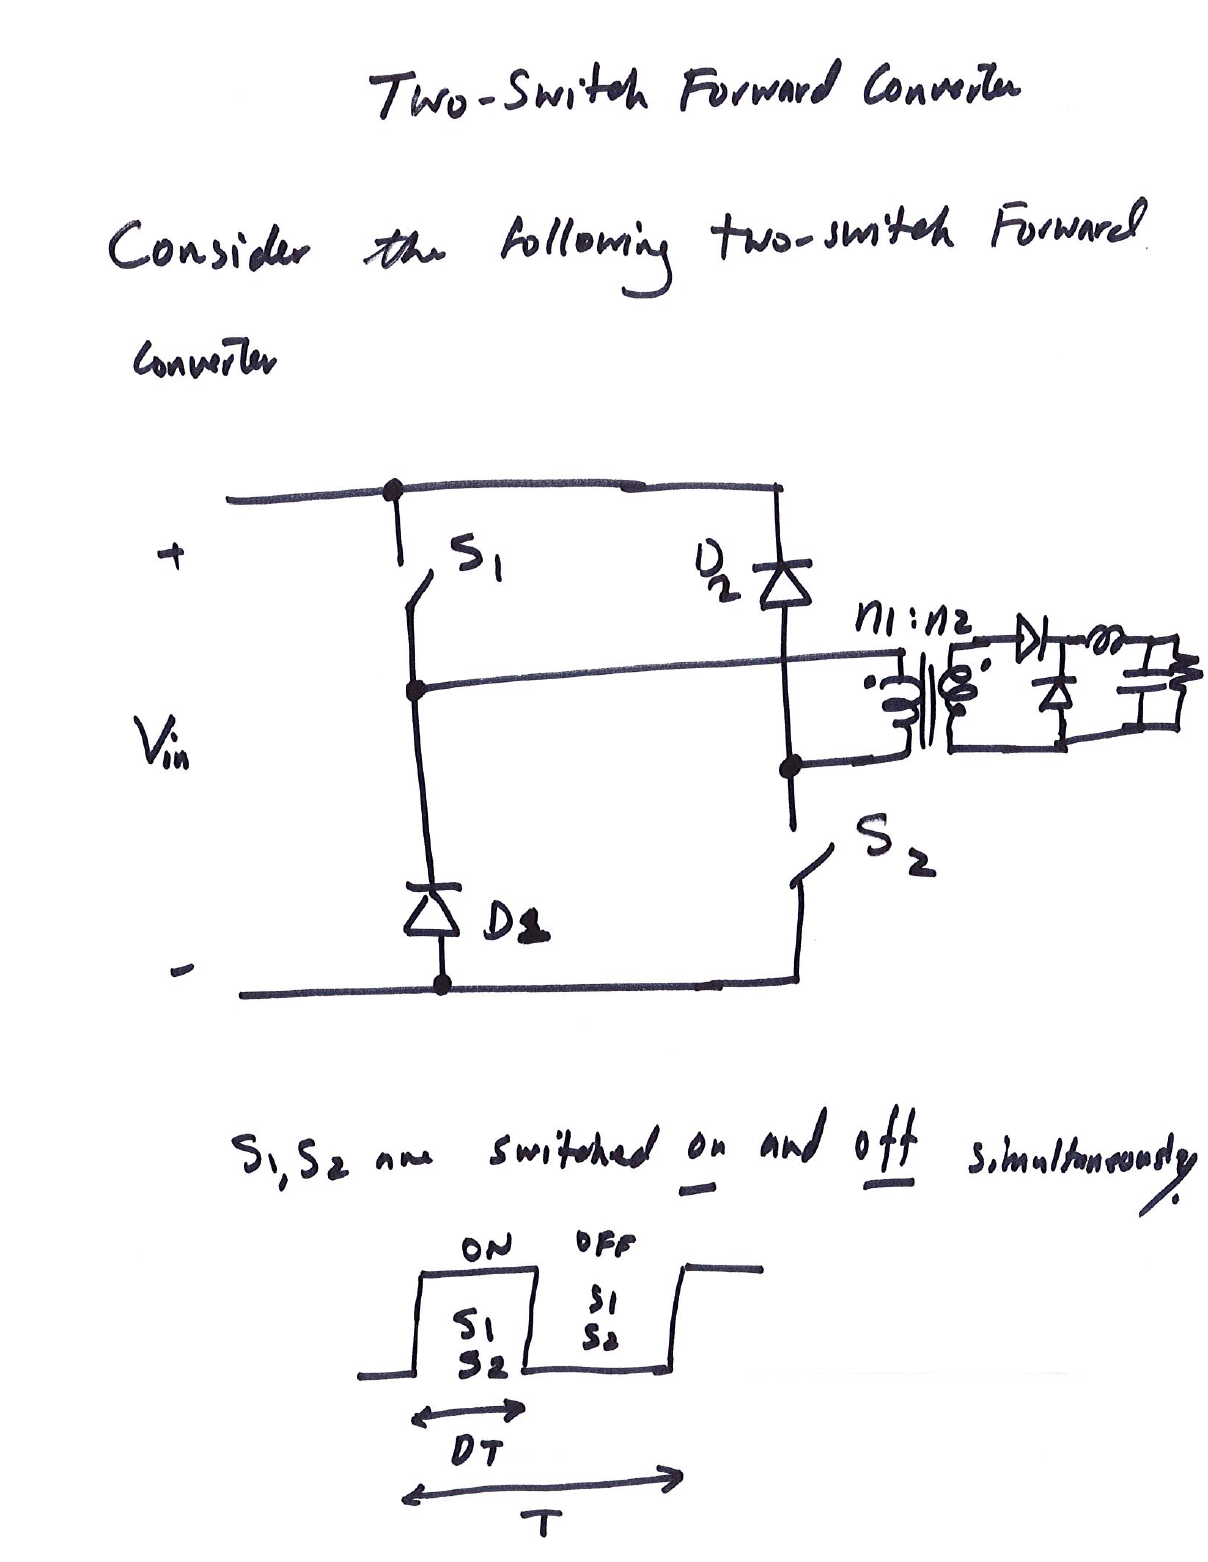 Two-Switch Forward Converter
Consider the following two-switch Forward
Converter
+
S1
D2
n1:n2
Vin
S2
D1
-
S1, S2 are switched on and off simultaneously.
ON OFF
S1 S1
S2 S2
DT
T